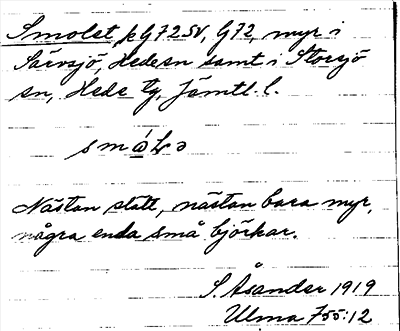 Smolet, p G72SV, G72, myr i
Särvsjö, Hede sn samt i Storsjö
sn, Hede tg, Jämtl. l.
Nästan slätt, nästan bara myr,
några enda små björkar.
S Åsander 1919
Ulma 755:12